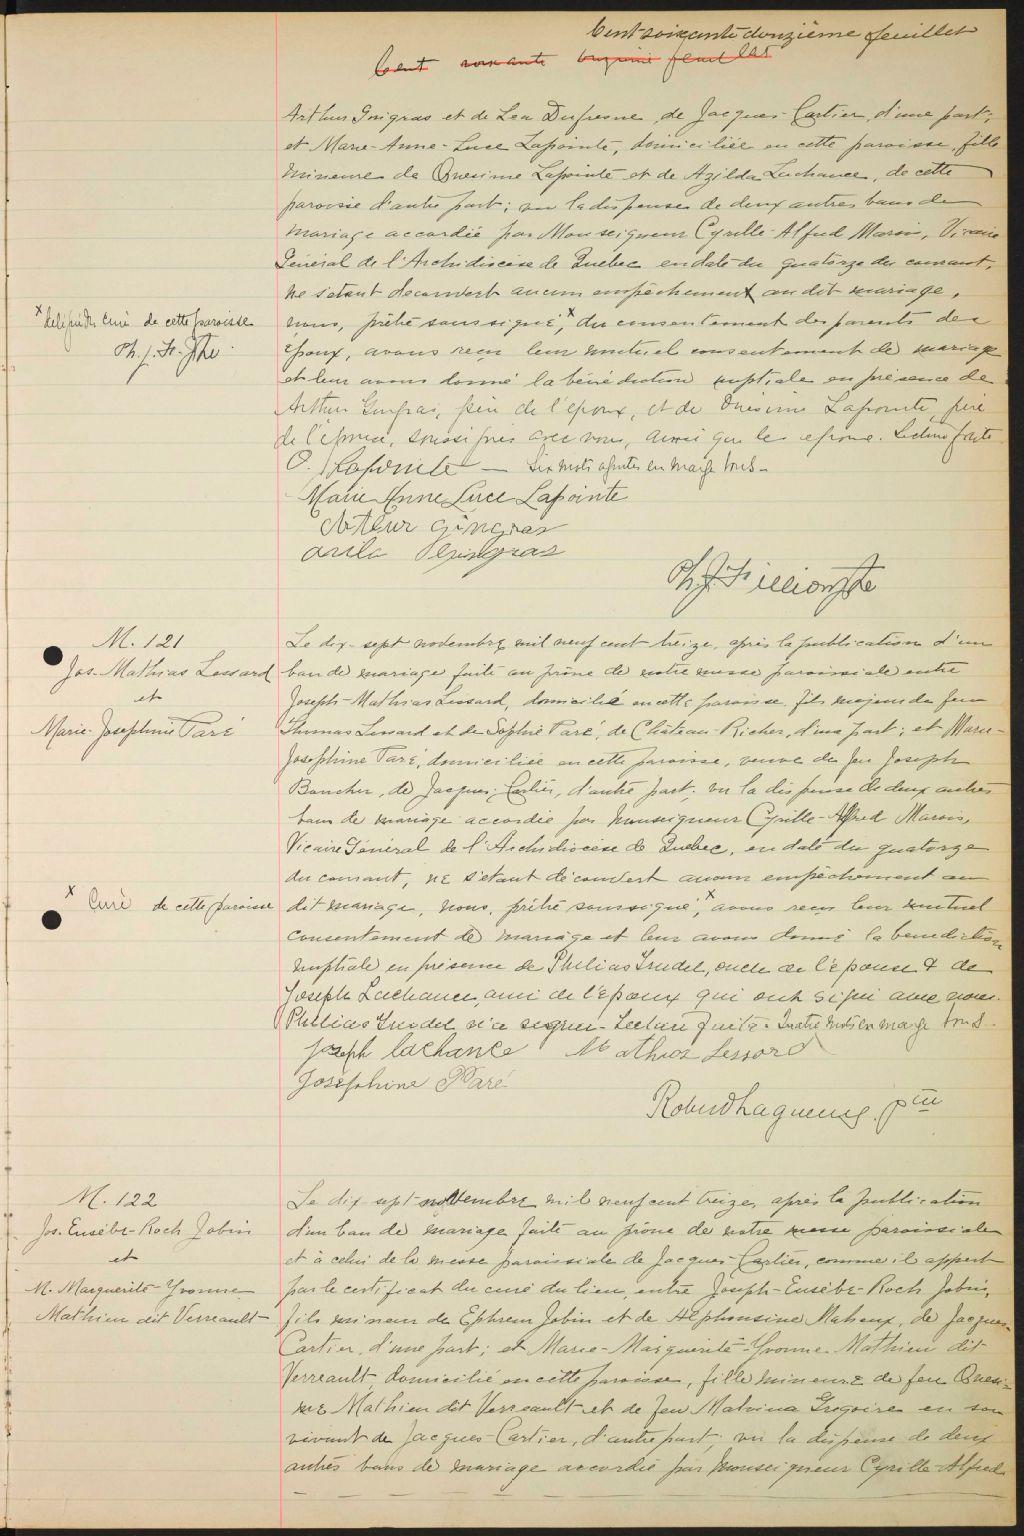 Cent soixante douzième feuillet
Cent soixante onzième feuillet
Arthur Gingras et de Lea Dufresne, de Jacques-Cartier, d'une part;
et Marie-Anne-Luce Lapointe, domiciliée en cette paroisse, fille
mineure de Onesime Lapointe et de Azilda Lachance, de cette
paroisse d'autre part; vu la dispense de deux autres bans de
mariage accordée par Monseigneur Cyrille-Alfred Marois, Vicaire
Général de l'Archidiocèse de Quebec en date du quatorze du courant,
ne s'étant découvert aucun empêchement au dit mariage,
nous, prêtre soussigné, x du consentement des parents des
époux, avons reçu leur mutuel consentement de mariage
et leur avons donné la bénédiction nuptiale en présence de
Arthur Gingras, père de l'époux, et de Onésime Lapointe, père
de l'épouse, soussignés avec nous, ainsi que les époux. Lecture faite
x curé de cette paroisse
Ph. J. F. Ptre
O. Lapointe — Six mots ajoutés en marge bons -
Marie Anne Luce Lapointe
Arthur Gingras
Ph. J. Fillion Ptre
M. 121
Jos. Mathias Lessard
et
Marie-Josephine Paré
Le dix-sept novembre mil neuf cent treize, après la publication d'un
ban de mariage faite au prône de notre messe paroissiale entre
Joseph-Mathias Lessard, domicilié en cette paroisse fils majeur de feu
Thomas Lessard et de Sophie Paré, de Château-Richer, d'une part; et Marie-
Josephine Paré, domiciliée en cette paroisse, veuve de feu Joseph
Boucher, de Jacques-Cartier, d'autre part; vu la dispense de deux autres
bans de mariage accordée par Monseigneur Cyrille-Alfred Marois,
Vicaire Général de l'Archidiocèse de Quebec, en date du quatorze
du courant, ne s'étant découvert aucun empêchement au
dit mariage, nous, prêtre soussigné, x avons reçu leur mutuel
consentement de mariage et leur avons donné la bénédiction
nuptiale en présence de Philias Trudel, oncle de l'épouse & de
Joseph Lachance, ami de l'époux qui ont signé avec nous.
Philias Trudel n'a signer - Lecture faite - Quatre mots en marge bons -
x Curé de cette paroisse
joseph lachance Mathias Lessard
Joséphine Paré
M. 122
Jos. Eusèbe-Roch Jobin
et
M. Marguerite-Yvonne
Mathieu dit Verreault
Le dix-sept novembre mil neuf cent treize, après la publication
d'un ban de mariage faite au prône de notre messe paroissiale
et à celui de la messe paroissiale de Jacques-Cartier, comme il appert
par le certificat du curé du lieu, entre Joseph-Eusèbe-Roch Jobin,
fils mineur de Ephrem Jobin et de Alphonsine Maheux, de Jacques-
Cartier, d'une part; et Marie-Marguerite-Yvonne Mathieu dit
Verreault, domicilié en cette paroisse, fille mineure de feu Onesi-
me Mathieu dit Verreault et de feu Malvina Gregoire en son
vivant de Jacques-Cartier, d'autre part; vu la dispense de deux
autres bans de mariage accordée par Monseigneur Cyrille-Alfred